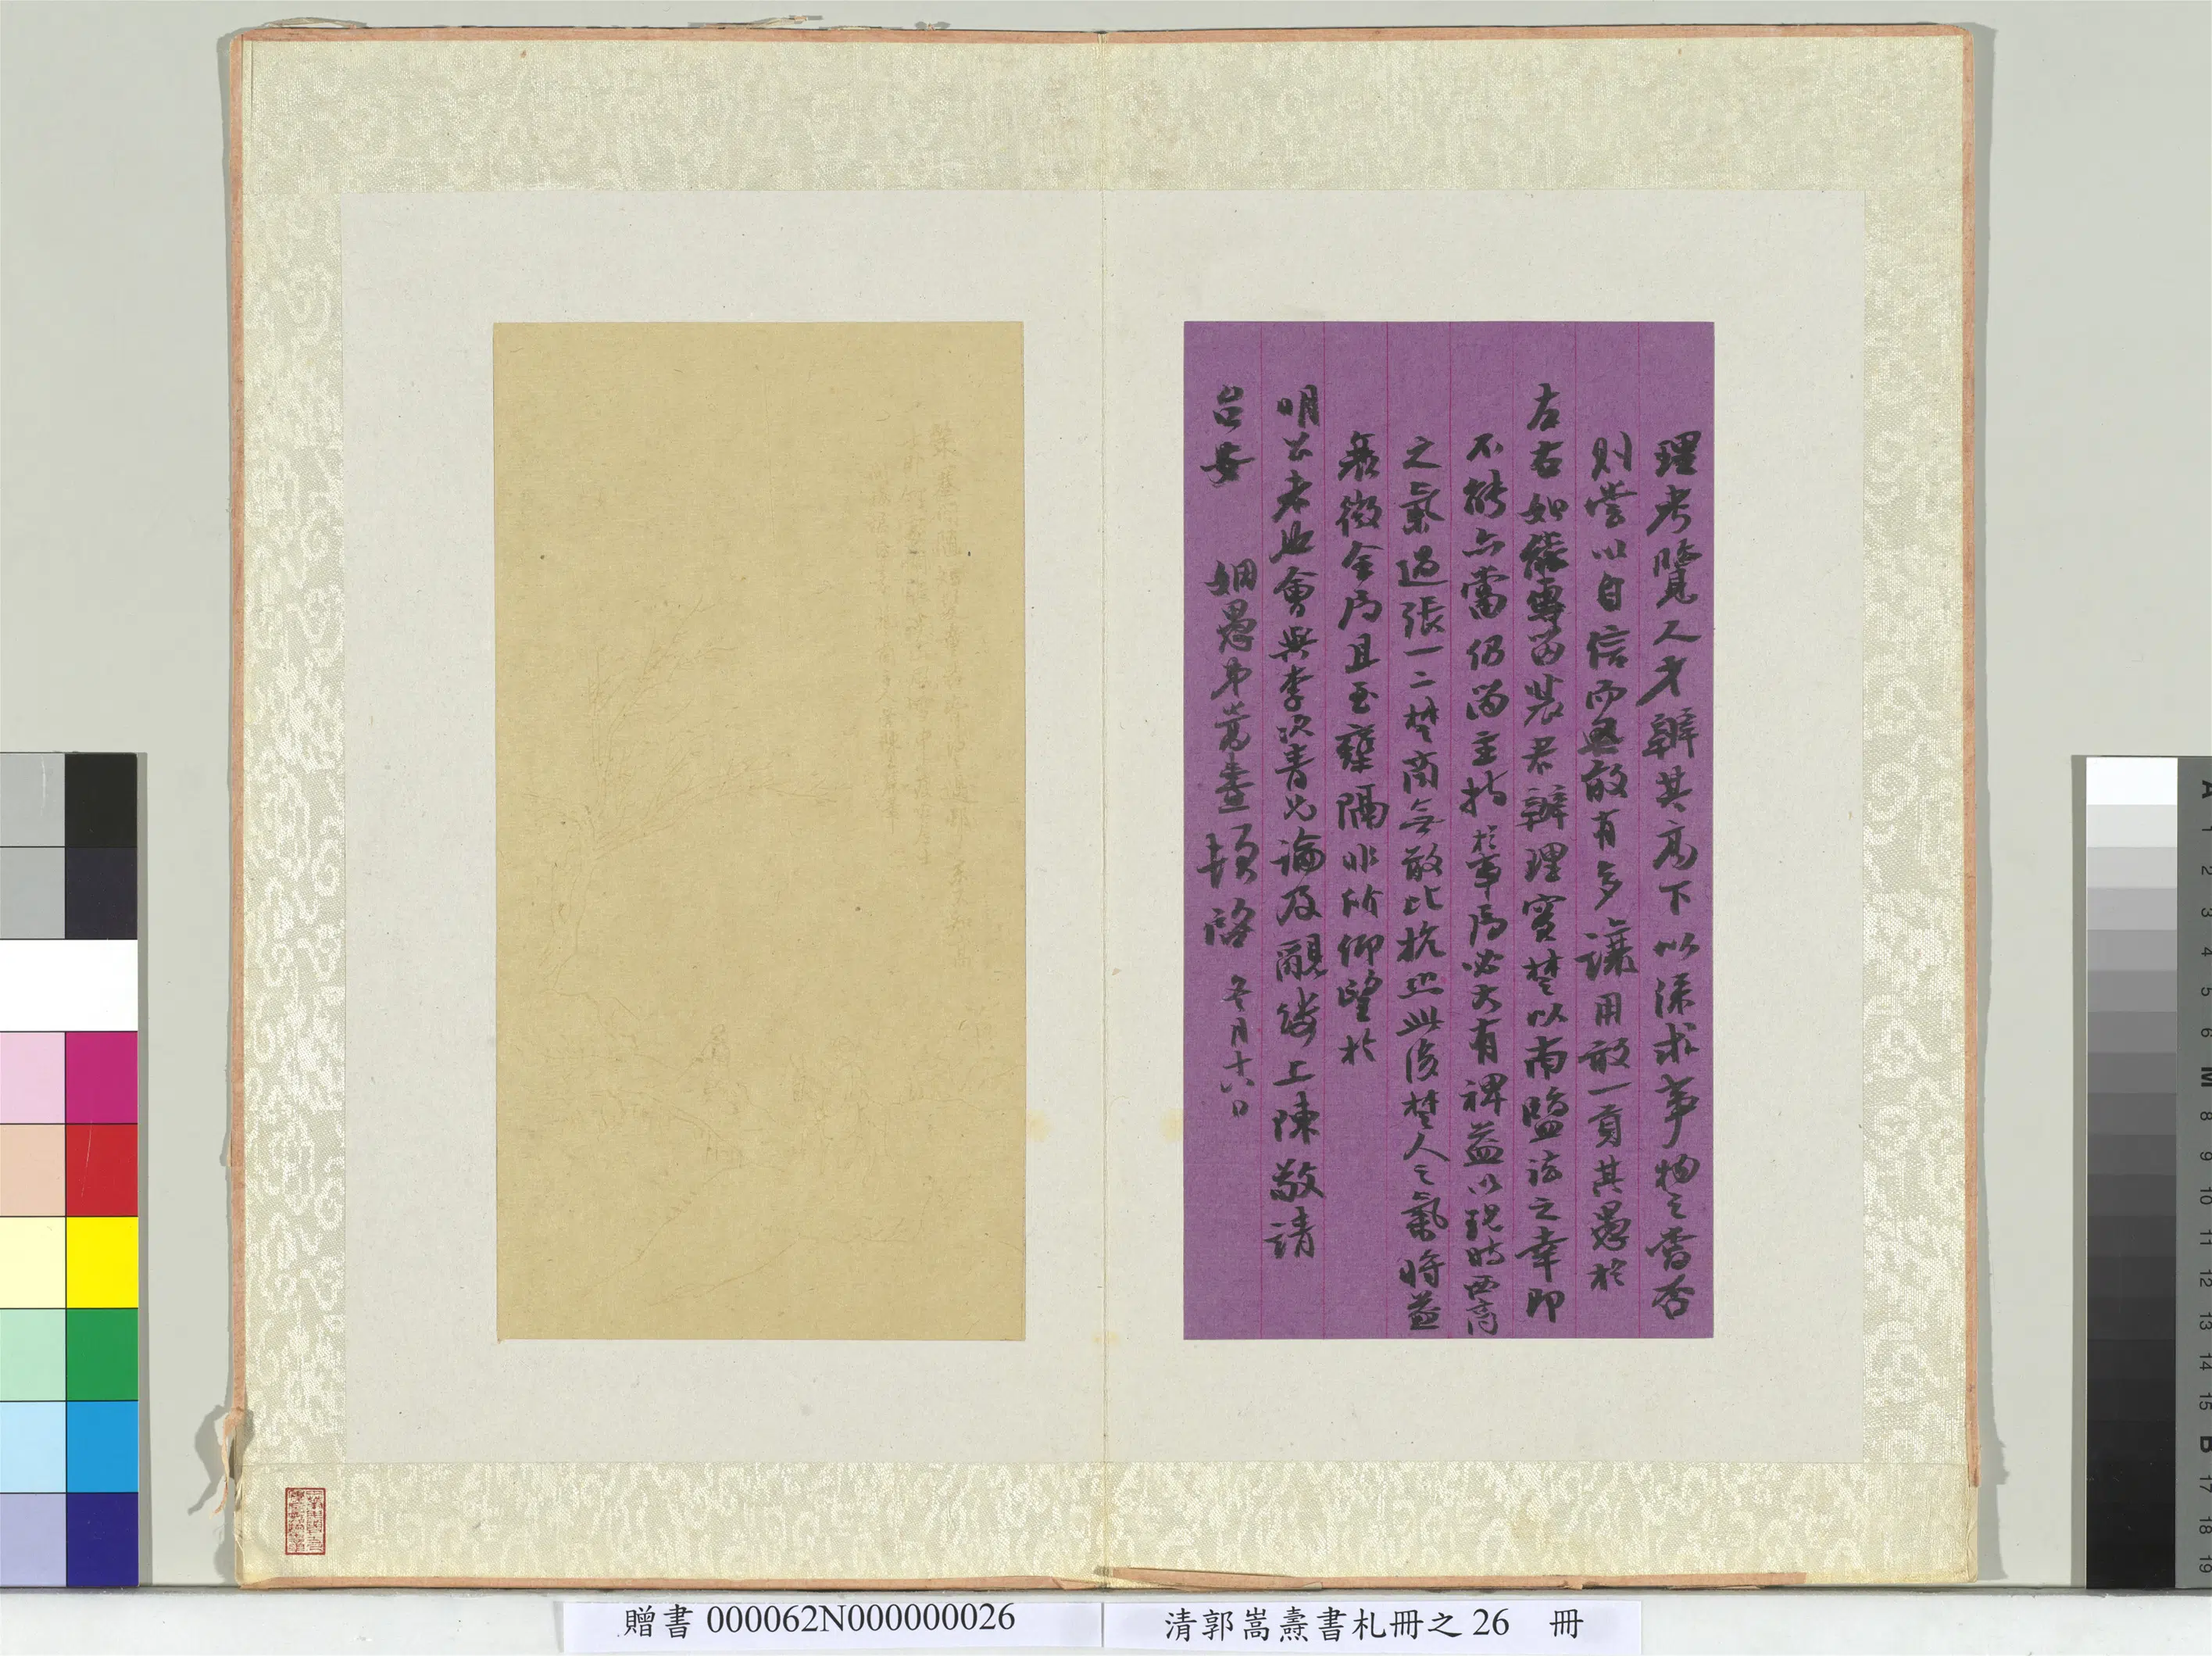 理考覽人才辧其高下以深求事物之當否
則嘗以自信而無敢有多讓用敢一貢其愚於
左右如能專留裴君辧理實楚以南鹽法之幸即
不能亦當仍留主持於事局必大有裨益以現時西商
之氣過張一二楚商無敢比抗然此後楚人之氣將益
衰微全局且至壅隔非所仰望於
明公者也會與李次青兄論及覼縷上陳敬請
台安 姻愚弟嵩燾頓啓 冬月十八日
贈書 000062N000000026
清郭嵩燾書札冊之 26 冊